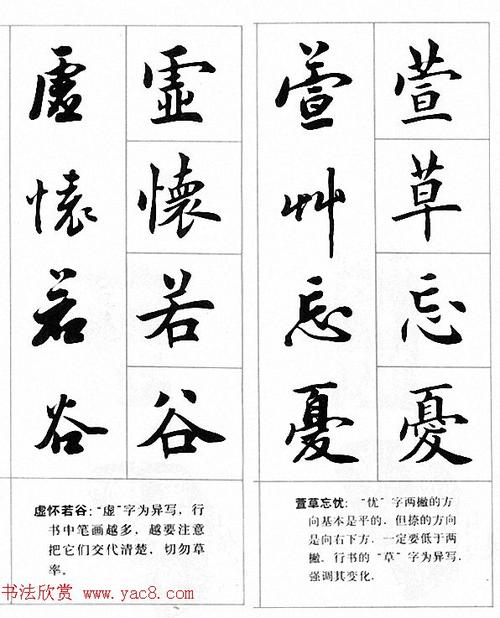 萱草忘憂
萱艸忘憂
萱草忘忧："忧"字两撇的方
向基本是平的，但捺的方向
是向右下方，一定要低于两
撇。行书的"草"字为异写，
强调其变化。
虛懷若谷
虛懷若谷
虚怀若谷："虚"字为异写，行
书中笔画越多，越要注意
把它们交代清楚，切勿草
率。
书法欣赏 www.yac8.com